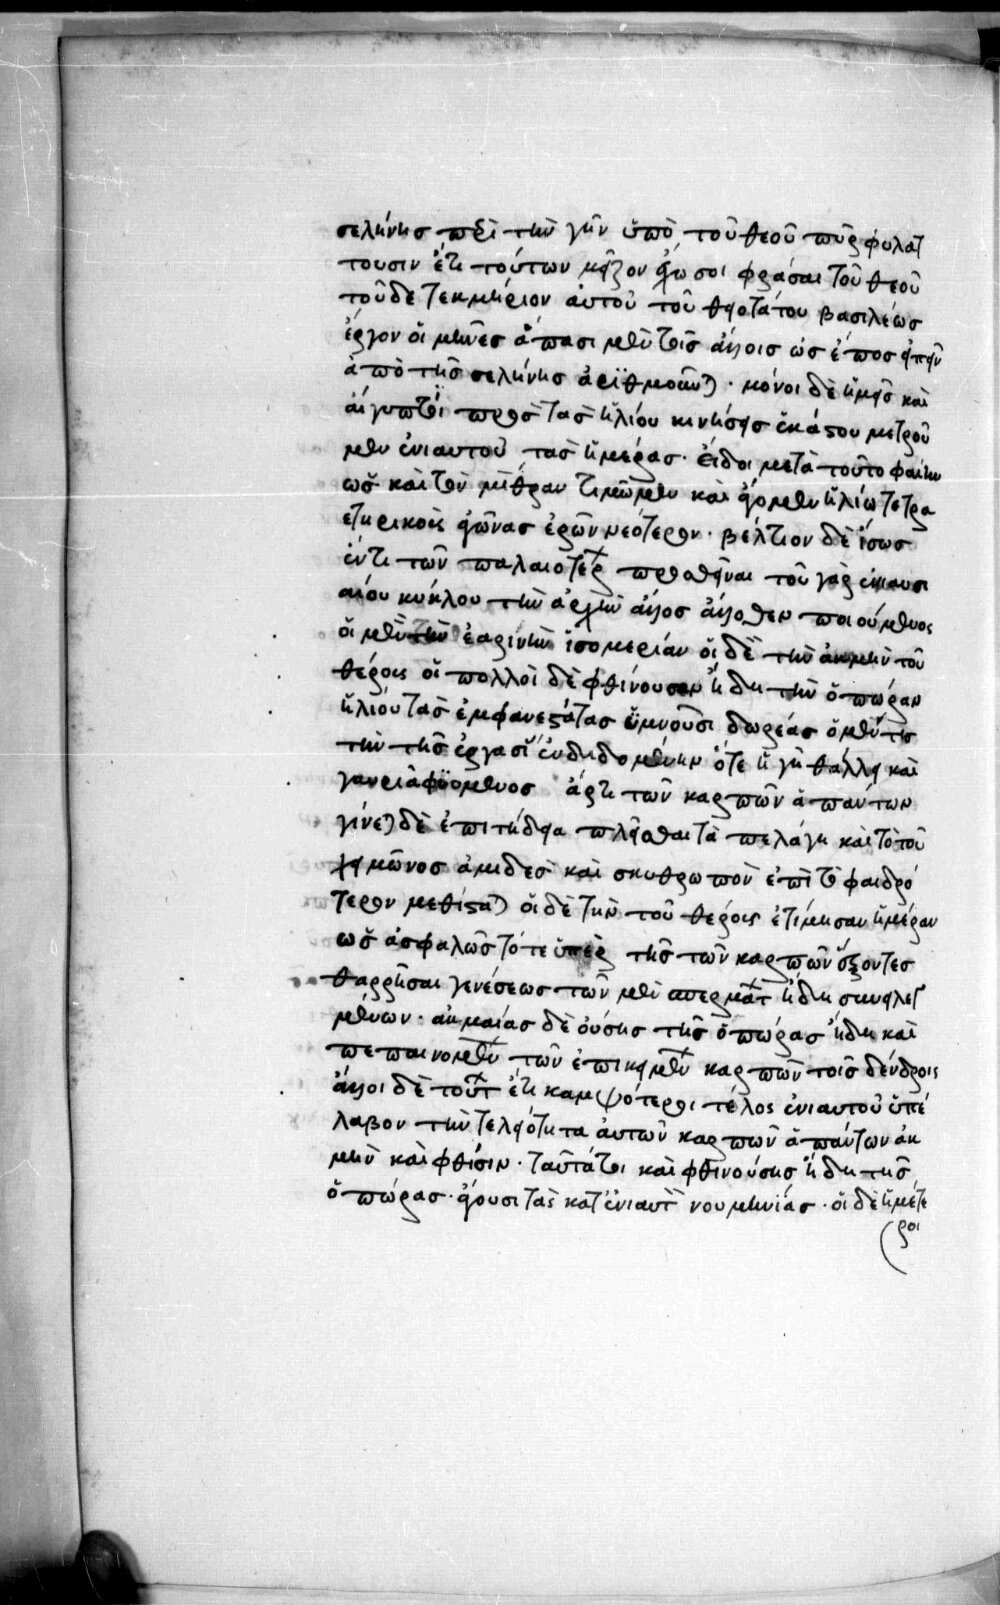 σελήνης περὶ τὴν γῆν ὑπὸ τοῦ θεοῦ πῦρ φυλάτ
τουσιν ἔτι τούτων μεῖζον ἔχω σοι φράσαι τοῦ θεοῦ
τοῦδε τεκμήριον αὐτοῦ τοῦ θειοτάτου βασιλέως
ἔργον οἱ μῆνες ἅπασι μὲν τοῖς ἄλλοις ὡς ἔπος εἰπεῖν
ἀπὸ τῆς σελήνης ἀριθμοῦνται · μόνοι δὲ ἡμεῖς καὶ
αἰγύπτιοι πρὸς τὰς ἡλίου κινήσεις ἑκάστου μετροῦ
μεν ἐνιαυτοῦ τὰς ἡμέρας · εἴ σοι μετὰ τοῦτο φαίην
ὡς καὶ τὸν μίθραν τιμῶμεν καὶ ἄγομεν ἡλίῳ τετρα
ετηρικοὺς ἀγῶνας ἐρῶ νεότερον · βέλτιον δὲ ἴσως
ἕν τι τῶν παλαιοτέρων προθεῖναι τοῦ γὰρ ἐνιαυσι
αίου κύκλου τὴν ἀρχὴν ἄλλος ἄλλοθεν ποιούμενος
οἱ μὲν τὴν ἐαρινὴν ἰσημερίαν οἱ δὲ τὴν ἀκμὴν τοῦ
θέρους οἱ πολλοὶ δὲ φθίνουσαν ἤδη τὴν ὀπώραν
ἡλίου τὰς ἐμφανεστάτας ὑμνοῦσι δωρεάς ὁ μέν τις
τὴν τῆς ἐργασίας ἐνδιδομένην ὅτε ἡ γῆ θάλλει καὶ
γαυριᾷ φυομένος ἄρτι τῶν καρπῶν ἁπάντων
γίνεται δὲ ἐπιτήδεια πλεῖσθαι τὰ πελάγη καὶ τὸ τοῦ
χειμῶνος ἀμιδὲς καὶ σκυθρωπὸν ἐπὶ τὸ φαιδρό
τερον μεθίσταται οἱ δὲ τὴν τοῦ θέρους ἐτίμησαν ἡμέραν
ὡς ἀσφαλῶς τότε ὑπὲρ τῆς τῶν καρπῶν ἔχοντες
θαρρῆσαι γενέσεως τῶν μὲν σπερμάτων ἤδη συνειλεγ
μένων · ἀκμαίας δὲ οὔσης τῆς ὀπώρας ἤδη καὶ
πεπαινομένων τῶν ἐπικειμένων καρπῶν τοῖς δένδροις
ἄλλοι δὲ τούτων ἔτι κομψότεροι τέλος ἐνιαυτοῦ ὑπέ
λαβον τὴν τελεότητα αὐτῶν καρπῶν ἁπάντων ἀκ
μὴν καὶ φθίσιν · ταῦτά τοι καὶ φθινούσης ἤδη τῆς
ὀπώρας · ἄγουσι τὰς κατ' ἐνιαυτὸν νουμηνίας · οἱ δὲ ἡμέτε
ροι